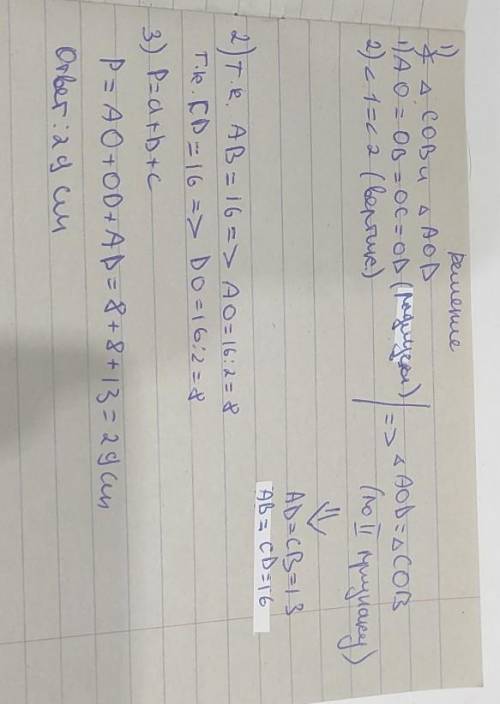 Решение
1) ∡ △ COB и △ AOD
1) AO = OB = OC = OD (радиусы)
2) < 1 = < 2 (вертик.)
=> △ AOD = △ COB
(по II признаку)
⇓
AD = CB = 13
AB = CD = 16
2) т.к. AB = 16 => AO = 16:2 = 8
т.к. CD = 16 => DO = 16:2 = 8
3) P = a + b + c
P = AO + OD + AD = 8 + 8 + 13 = 29 cm
Ответ: 29 cm